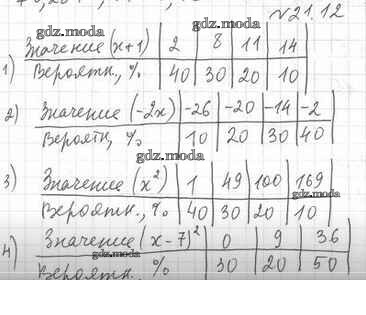 №21.12
gdz.moda gdz.moda
1) Значение (x+1) | 2 | 8 | 11 | 14
Вероятн., % | 40 | 30 | 20 | 10
2) Значение (-2x) | -26 | -20 | -14 | -2
Вероятн, % | 10 | 20 | 30 | 40
gdz.moda
3) Значение (x²) | 1 | 49 | 100 | 169
gdz.moda
Вероятн., % | 40 | 30 | 20 | 10
4) Значение (x-7)² | 0 | 9 | 36
gdz.moda
Вероятн. % | 30 | 20 | 50